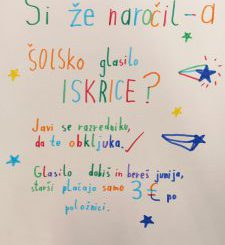 Si že naročil-a
ŠOLSKO glasilo
ISKRICE?
Javi se razredniku,
da te obkljuka.
Glasilo dobiš in bereš junija,
starši plačajo samo 3€ po
položnici.